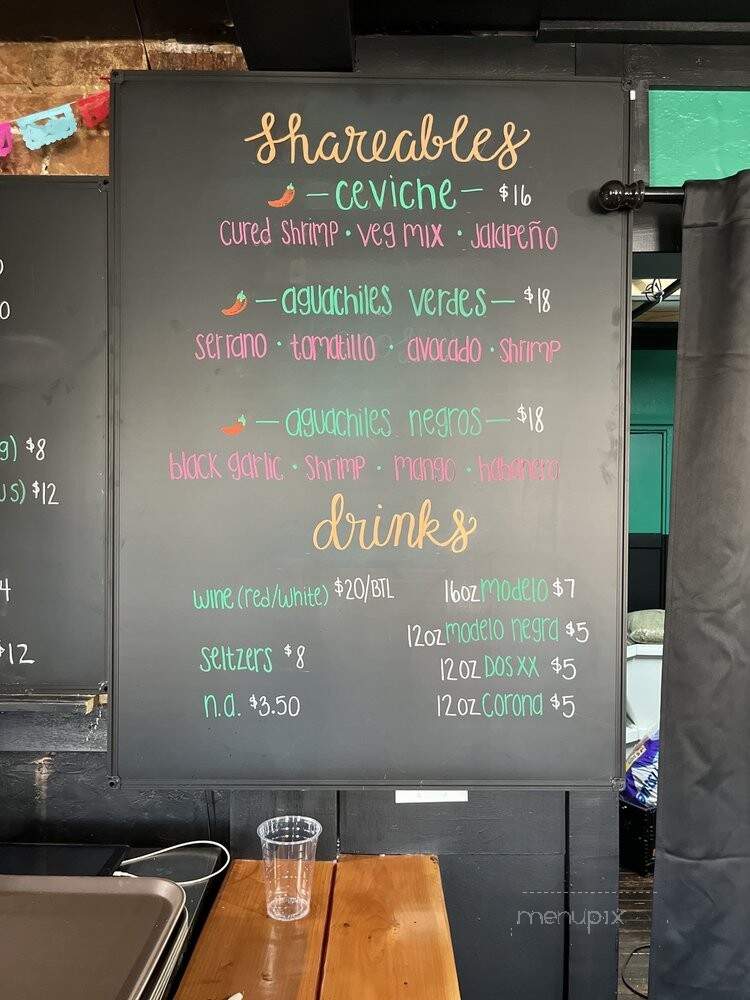 shareables
- ceviche - $16
cured shrimp · veg mix · jalapeño
- aguachiles verdes - $18
serrano · tomatillo · avocado · shrimp
- aguachiles negros - $18
black garlic · shrimp · mango · habanero
drinks
wine (red/white) $20/BTL
seltzers $8
n.a. $3.50
16oz modelo $7
12oz modelo negra $5
12oz DOS XX $5
12oz corona $5
g) $8
us) $12
4
$12
menupix